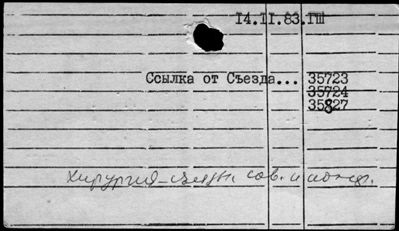 14.II.83.ГШ
Ссылка от Съезда... 35723
35724
35827
Хирургия – съезды, сов. и конф.